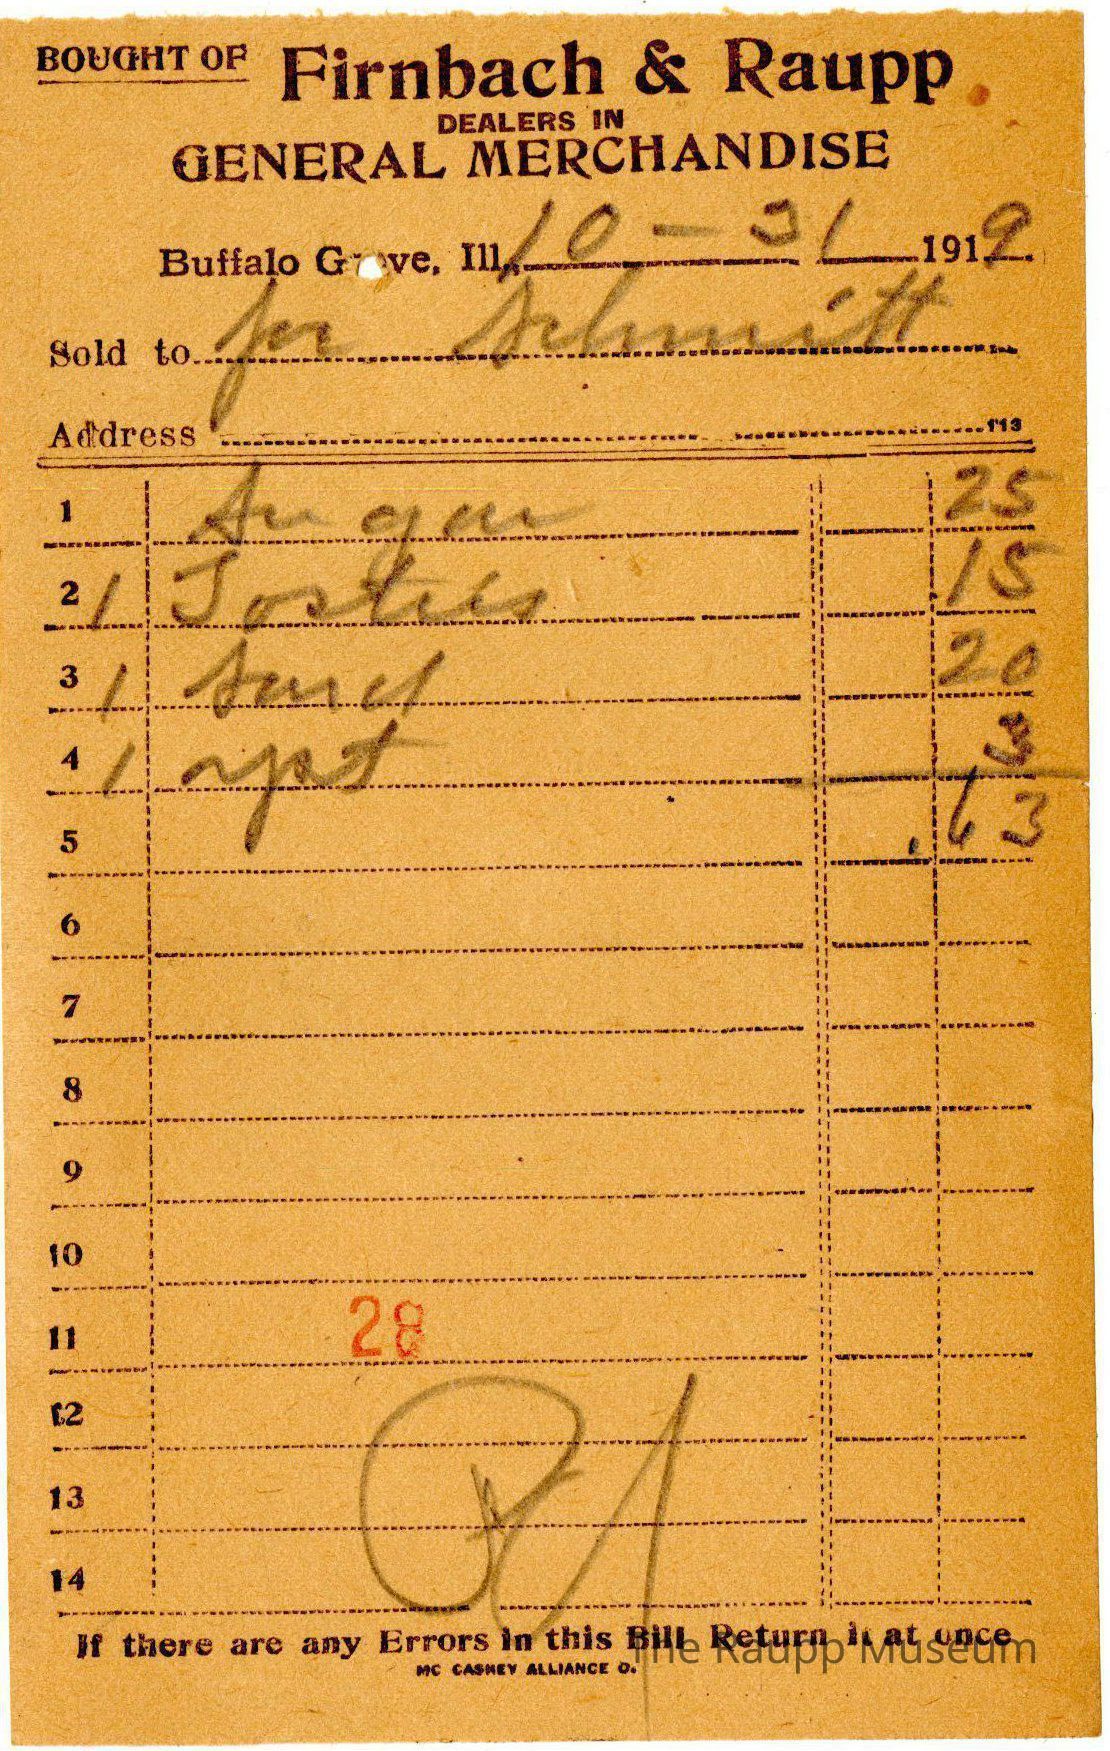 BOUGHT OF Firnbach & Raupp
DEALERS IN
GENERAL MERCHANDISE
Buffalo G ve, Ill., 10 - 31 1919.
Sold to Jos Schmitt
Address 113
1 Sugar 25
2 1 Tosties 15
3 1 20
4 1 yst 3
5 .63
6
7
8
9
10
11 28
12
13
14
If there are any Errors in this Bill Return it at once
MC CASKEY ALLIANCE O.
The Raupp Museum